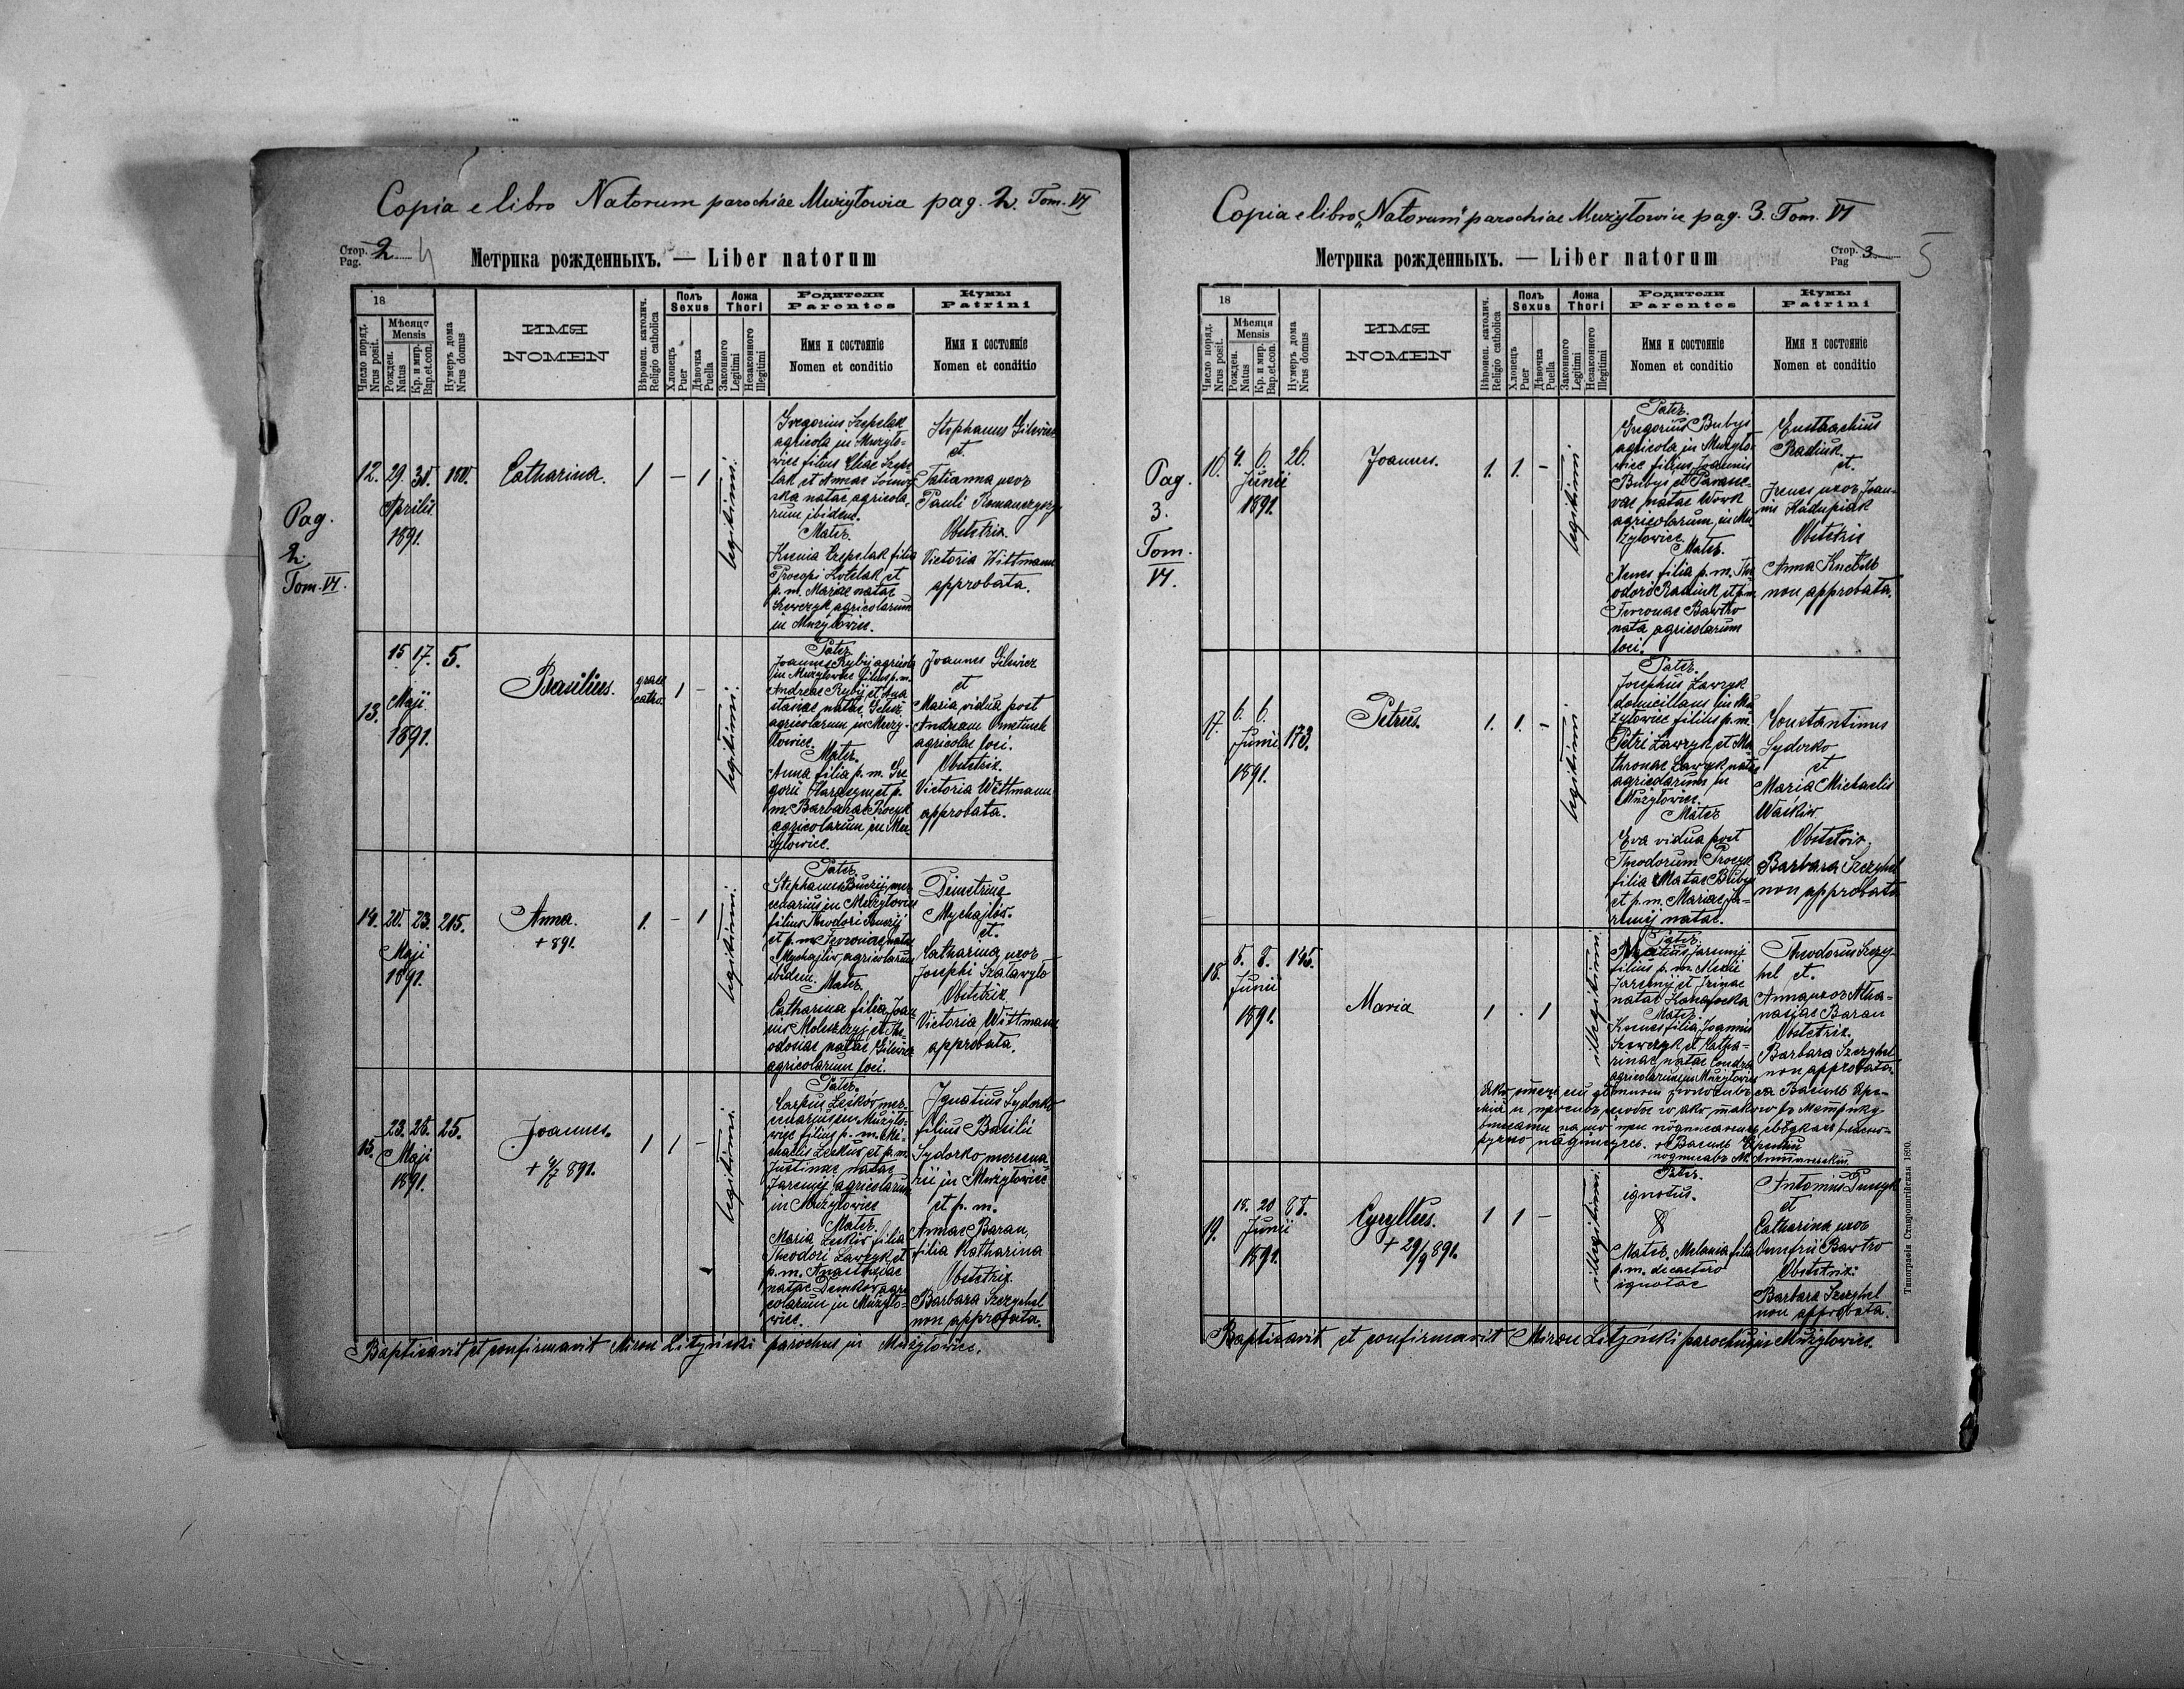 Copia e libro Natorum parochiae Mużyłowice pag. 2. Tom. VI
Стор. 2 4
Pag.
Метрика рожденныхъ. — Liber natorum
18
Число поряд. Nrus posit.
Мѣсяця Mensis
Рожден. Natus
Кр. и мир. Bap. et con.
Нумеръ дома Nrus domus
ИМЯ
NOMEN
Вѣроисп. католич. Religio catholica
Полъ Sexus
Хлопецъ Puer
Дѣвочка Puella
Ложа Thori
Законного Legitimi
Незаконного Illegitimi
Родители
Parentes
Имя и состоянiе
Nomen et conditio
Кумы
Patrini
Имя и состоянiе
Nomen et conditio
Pag.
2.
Tom. VI.
12. 29. 30. 180.
Aprilis
1891.
Catharina.
1 — 1
legitimi.
Gregorius Szepelak
agricola in Mużyło-
wice filius Eliae Szepe-
lak et Annae
natae agricola-
rum ibidem.
Mater.
Ksenia Szepelak filia
Procopi Kotelak et
p. m. Mariae natae
Szewczyk agricolarum
in Mużyłowice.
Stephanus Gilewicz
et.
Tatianna uxor
Pauli Romanczycz
Obstetrix.
Victoria Wittmann
approbata.
13. 15 17. 5.
Maji
1891.
Basilius.
graec
catho.
1 —
legitimi.
Pater.
Joannes Rybij agricola
in Mużyłowice filius p. m.
Andreae Rybij et Ana
stasiae natae
agricolarum in Muzy-
łowice.
Mater.
Anna filia p. m. Gre
gorii Harasym et p.
m. Barbarae Procyk
agricolarum in Mu-
żyłowice.
Joannes Gilewicz
et
Maria vidua post
Andream Ometiuch
agricolae loci.
Obstetrix.
Victoria Wittmann
approbata.
14. 20. 23. 215.
Maji
1891.
Anna.
+ 891.
1. — 1
legitimi.
Pater.
Stephanus Bucrij mer
cenarius in Mużyłowice
filius Theodori Bucrij
et p. m. Fevroniae natae
Mychajłiw agricolarum
ibidem.
Mater.
Catharina filia Joan
nis Moleszczyj et The-
odosiae natae Gilewicz
agricolarum loci.
Demetrius
Mychajłów.
et.
Catharina uxor
Josephi Szaławyło
Obstetrix
Victoria Wittmann
approbata.
15. 23. 26. 25.
Maji
1891.
Joannes.
+ 4/7 891.
1 1 —
legitimi.
Pater.
Carpus Leskow mer-
cenarius in Mużyło-
wice filius p. m. Mi-
chaelis Leskiw et p. m.
Justinae natae
Jaremij agricolarum
in Mużyłowice
Mater.
Maria Leskiw filia
Theodori Ławryk et
p. m. Anastasiae
natae Demkow agri
colarum in Mużyło-
wice.
Ignatius Sydorko
filius Basilii
Sydorko mercena-
rii in Mużyłowice
et p. m.
Annae Baran,
filia Katharina
Obstetrix.
Barbara Szczyhel
non approbata.
Baptisavit et confirmavit Miron Lityński parochus in Mużyłowice.
Copia e libro „Natorum" parochiae Mużyłowice pag. 3. Tom. VI
Метрика рожденныхъ. — Liber natorum
Стор. 3 5
Pag
18
Число поряд. Nrus posit.
Мѣсяця Mensis
Рожден. Natus
Кр. и мир. Bap. et con.
Нумеръ дома Nrus domus
ИМЯ
NOMEN
Вѣроисп. католич. Religio catholica
Полъ Sexus
Хлопецъ Puer
Дѣвочка Puella
Ложа Thori
Законного Legitimi
Незаконного Illegitimi
Родители
Parentes
Имя и состоянiе
Nomen et conditio
Кумы
Patrini
Имя и состоянiе
Nomen et conditio
Pag.
3.
Tom.
VI.
16. 4. 6. 26.
Junii
1891.
Joannes.
1. 1. —
legitimi
Pater.
Gregorius Bubys
agricola in Mużyło
wice filius Joannis
Bubys et Parasce-
vae natae Wowk
agricolarum in Mu
żyłowice.
Mater.
Xenes filia p. m. The
odori Radiuk et p. m.
Fevronae Bawtro
nata agricolarum
loci.
Eusthachius
Radiuk.
et.
Irenes uxor Joan-
nis Kadupiak
Obstetrix
Anna Knebel
non approbata.
17. 6. 6. 173.
Junii
1891.
Petrus.
1. 1. —
legitimi
Pater.
Josephus Ławryk
domicillans in Mu
żyłowice filius p. m.
Petri Ławryk et Ma
thronae Ławryk natae
agricolarum in
Mużyłowice.
Mater
Eva vidua post
Theodorum Procyk
filia Matae Bubys
et p. m. Mariae Ja-
remij natae.
Constantinus
Sydorko
et
Maria Michaelis
Waskiw.
Obstetrix.
Barbara Szczyhel
non approbata
18. 8. 8. 195.
Junii
1891.
Maria
1 . 1
illegitimi.
Pater.
Jaremij
filius p. m. Alexii
Jaremij et Irinae
natae
Mater.
Ksenes filia Joannis
Szewczyk et Katha-
rinae natae Condra
agricolarum in Mużyłowice
Theodorus Szczy-
hel et.
Anna uxor Atha-
nasiae Baran
Obstetrix.
Barbara Szczyhel
non approbata.
19. 18. 20 88.
Junii
1891.
Cyryllus.
+ 29/9 891.
1 1 —
illegitimi.
Pater.
ignotus.
&
Mater. Melania filia
p. m. de caetero
ignotae
Antonius Duszyk
et
Catharina uxor
Onufrii Bawtro
Obstetrix:
Barbara Szczyhel
non approbata.
Baptisavit et confirmavit Miron Lityński parochus in Mużyłowice.
Типографія Ставропигійская 1890.